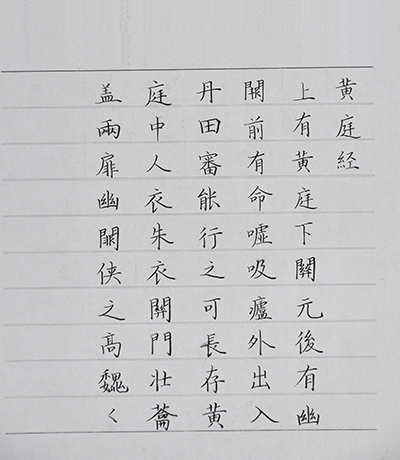 黄庭経
上有黄庭下關元後有幽
闕前有命嘘吸廬外出入
丹田審能行之可長存黄
庭中人衣朱衣關門壮蘥
盖兩扉幽闕侠之高魏〱